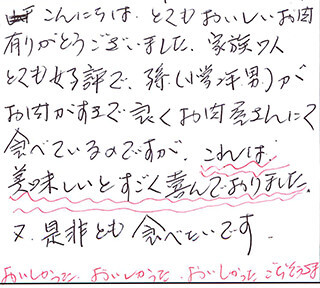 こんにちは、とてもおいしいお肉
有りがとうございました。家族4人
とても好評で、孫(小学2年男)が
お肉がすきで良くお肉屋さんにて
食べているのですが、これは
美味しいとすごく喜んでおりました。
又、是非とも食べたいです。
おいしかった、おいしかった、おいしかった、ごちそうさま